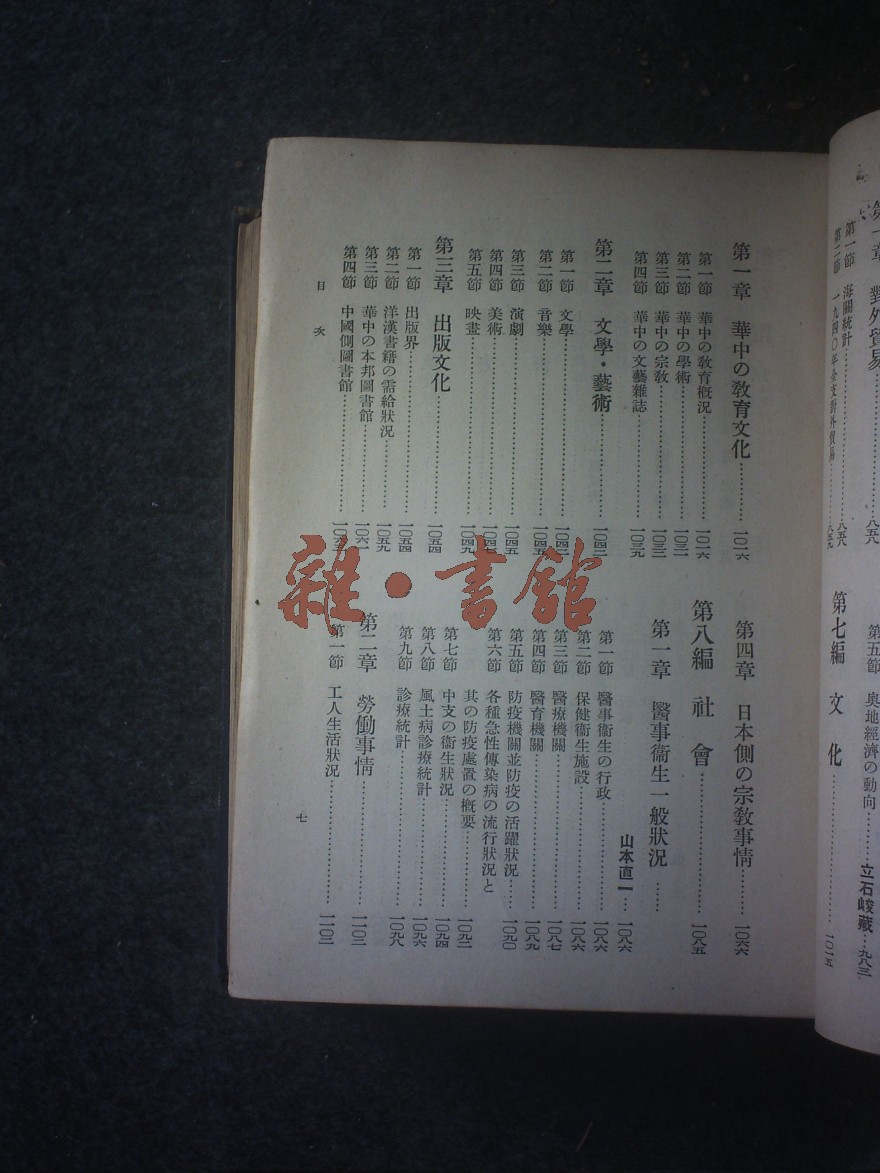 第一章　對外貿易
第一節　海關統計……八五八
第二節　一九四〇年全支對外貿易……八五九
第五節　奧地經濟の動向……立石峻藏…九八三
第七編　文化……一〇一五
第一章　華中の敎育文化……一〇一六
第一節　華中の敎育槪況……一〇一六
第二節　華中の學術……一〇三一
第三節　華中の宗敎……一〇三二
第四節　華中の文藝雜誌……一〇三九
第二章　文學・藝術……一〇四二
第一節　文學……一〇四二
第二節　音樂……一〇四五
第三節　演劇……一〇四五
第四節　美術……一〇四七
第五節　映畫……一〇四九
第三章　出版文化……一〇五四
第一節　出版界……一〇五四
第二節　洋漢書籍の需給狀況……一〇五九
第三節　華中の本邦圖書館……一〇六一
第四節　中國側圖書館
第四章　日本側の宗敎事情……一〇六六
第八編　社會……一〇八五
第一章　醫事衞生一般狀況……
山本直一…一〇八六
第一節　醫事衞生の行政……一〇八六
第二節　保健衞生施設……一〇八六
第三節　醫療機關……一〇八七
第四節　醫育機關……一〇八九
第五節　防疫機關並防疫の活躍狀況……一〇九〇
第六節　各種急性傳染病の流行狀況と
其の防疫處置の槪要……一〇九二
第七節　中支の衞生狀況……一〇九四
第八節　風土病診療統計……一〇九六
第九節　診療統計……一〇九八
第二章　勞働事情……一一〇二
第一節　工人生活狀況……一一〇二
目次
七
雜・書館